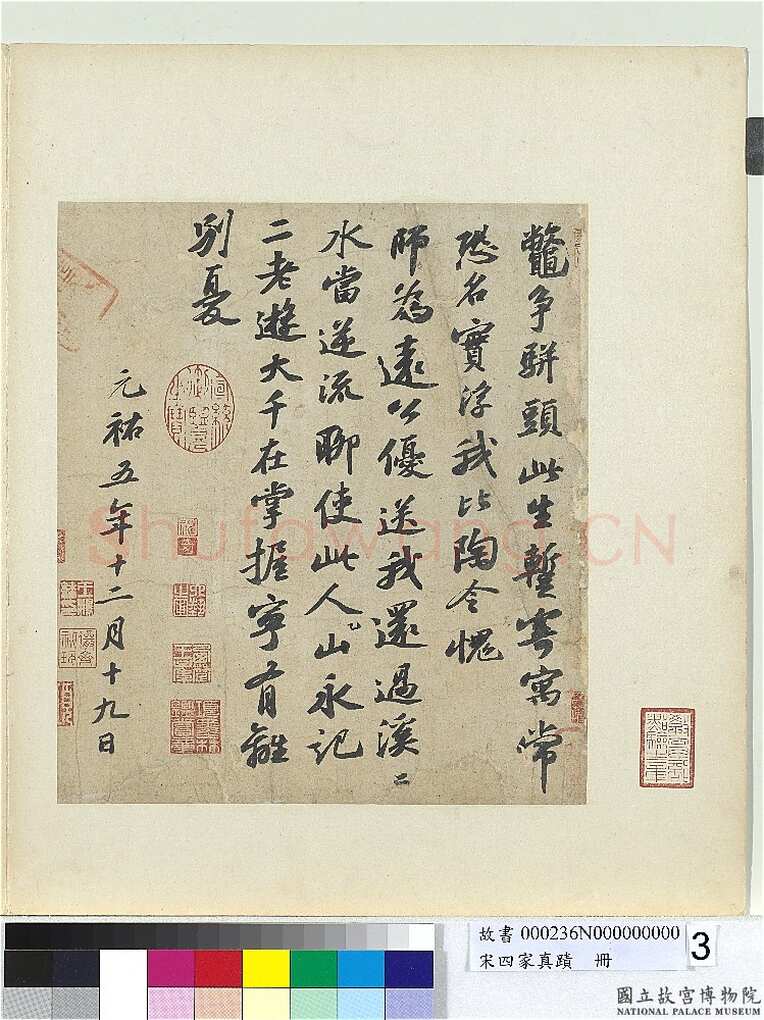 鼈争駢頭此生暫寄寓常
恐名實浮我比陶令愧
師為遠公優送我還過溪〻
水當逆流聊使此人山永記
二老遊大千在掌握寧有離
別憂
元祐五年十二月十九日
Shufawang.CN
故書 000236N000000000
宋四家真蹟 冊
3
國立故宮博物院
NATIONAL PALACE MUSEUM